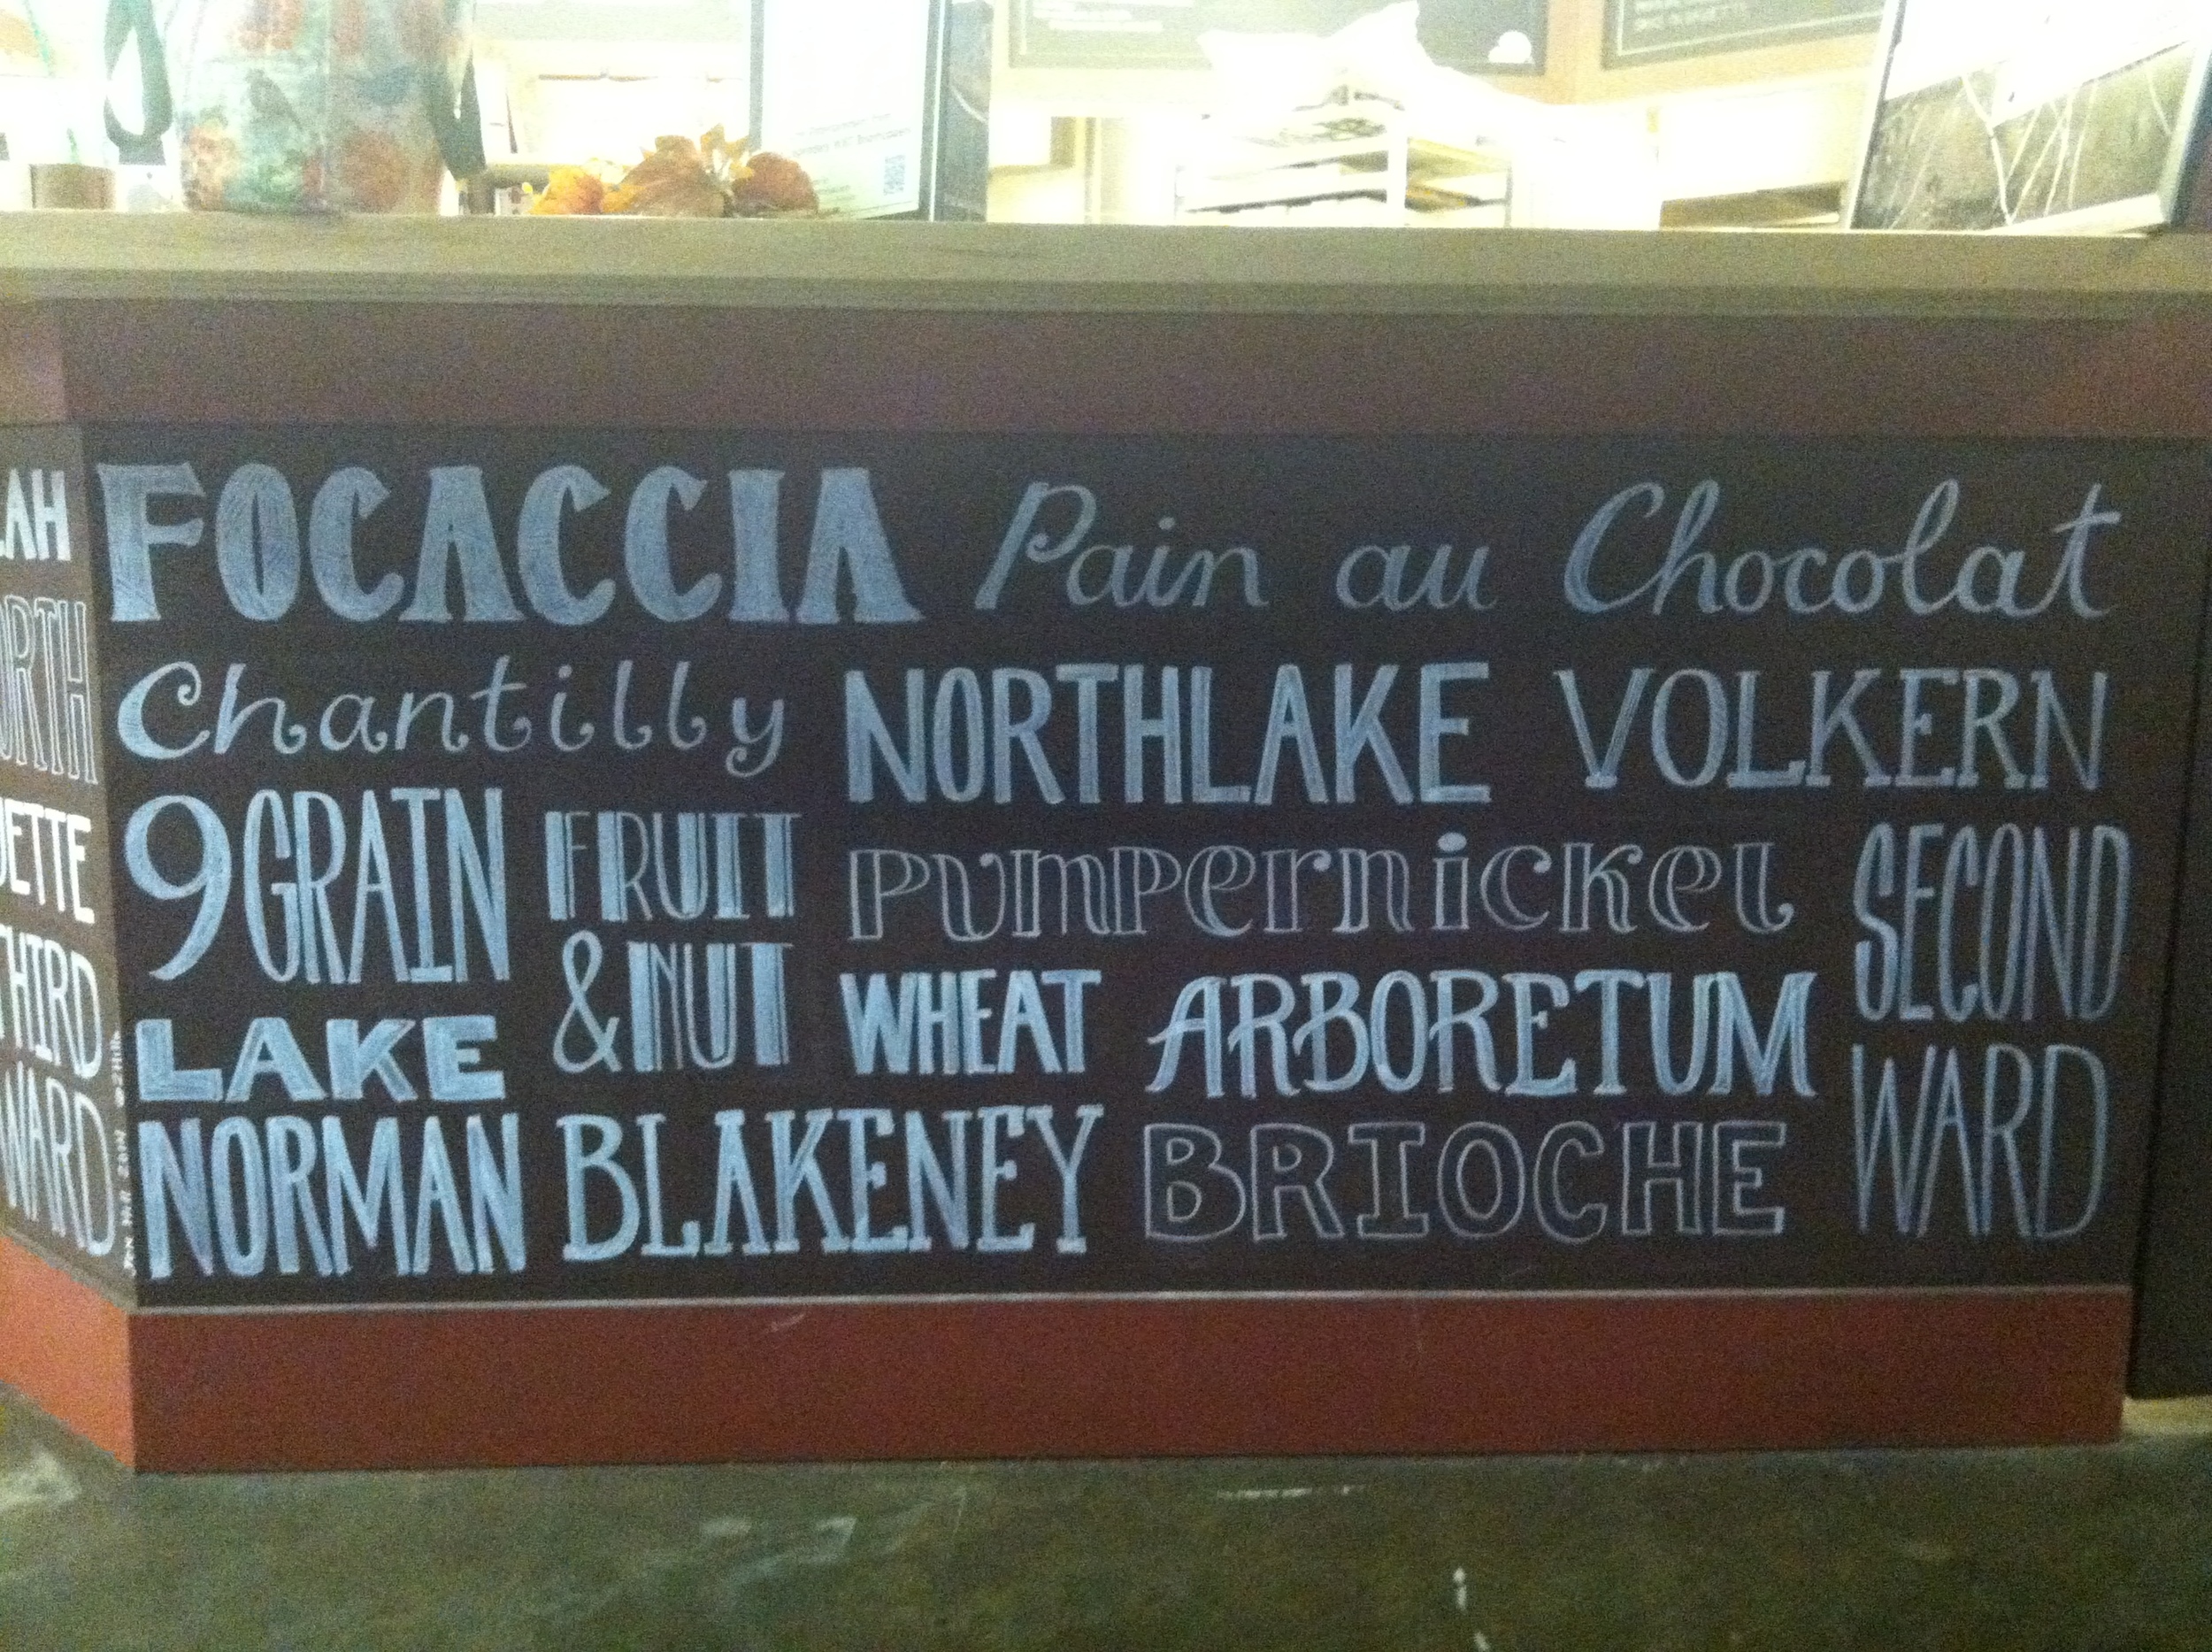 FOCACCIA Pain au Chocolat
Chantilly NORTHLAKE VOLKERN
9 GRAIN FRUIT & NUT PUMPERNICKEL SECOND WARD
LAKE NORMAN WHEAT ARBORETUM
BLAKENEY BRIOCHE
LAH
ORTH
DETTE
THIRD
WARD